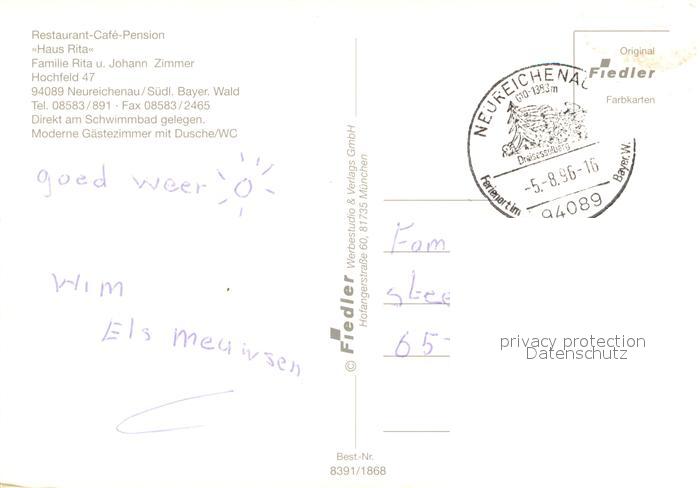 Restaurant-Café-Pension
»Haus Rita«
Familie Rita u. Johann Zimmer
Hochfeld 47
94089 Neureichenau/Südl. Bayer. Wald
Tel. 08583/891 · Fax 08583/2465
Direkt am Schwimmbad gelegen.
Moderne Gästezimmer mit Dusche/WC
goed weer
Wim
Els
© Fiedler Werbestudio & Verlags GmbH
Hofangerstraße 60, 81735 München
Best.-Nr.
8391/1868
Original
Fiedler
Farbkarten
NEUREICHENAU
610-1383m
Dreisesselberg
-5.-8.96-16
Ferienort im
Bayer. W.
94089
Fam
stee
65-
privacy protection
Datenschutz